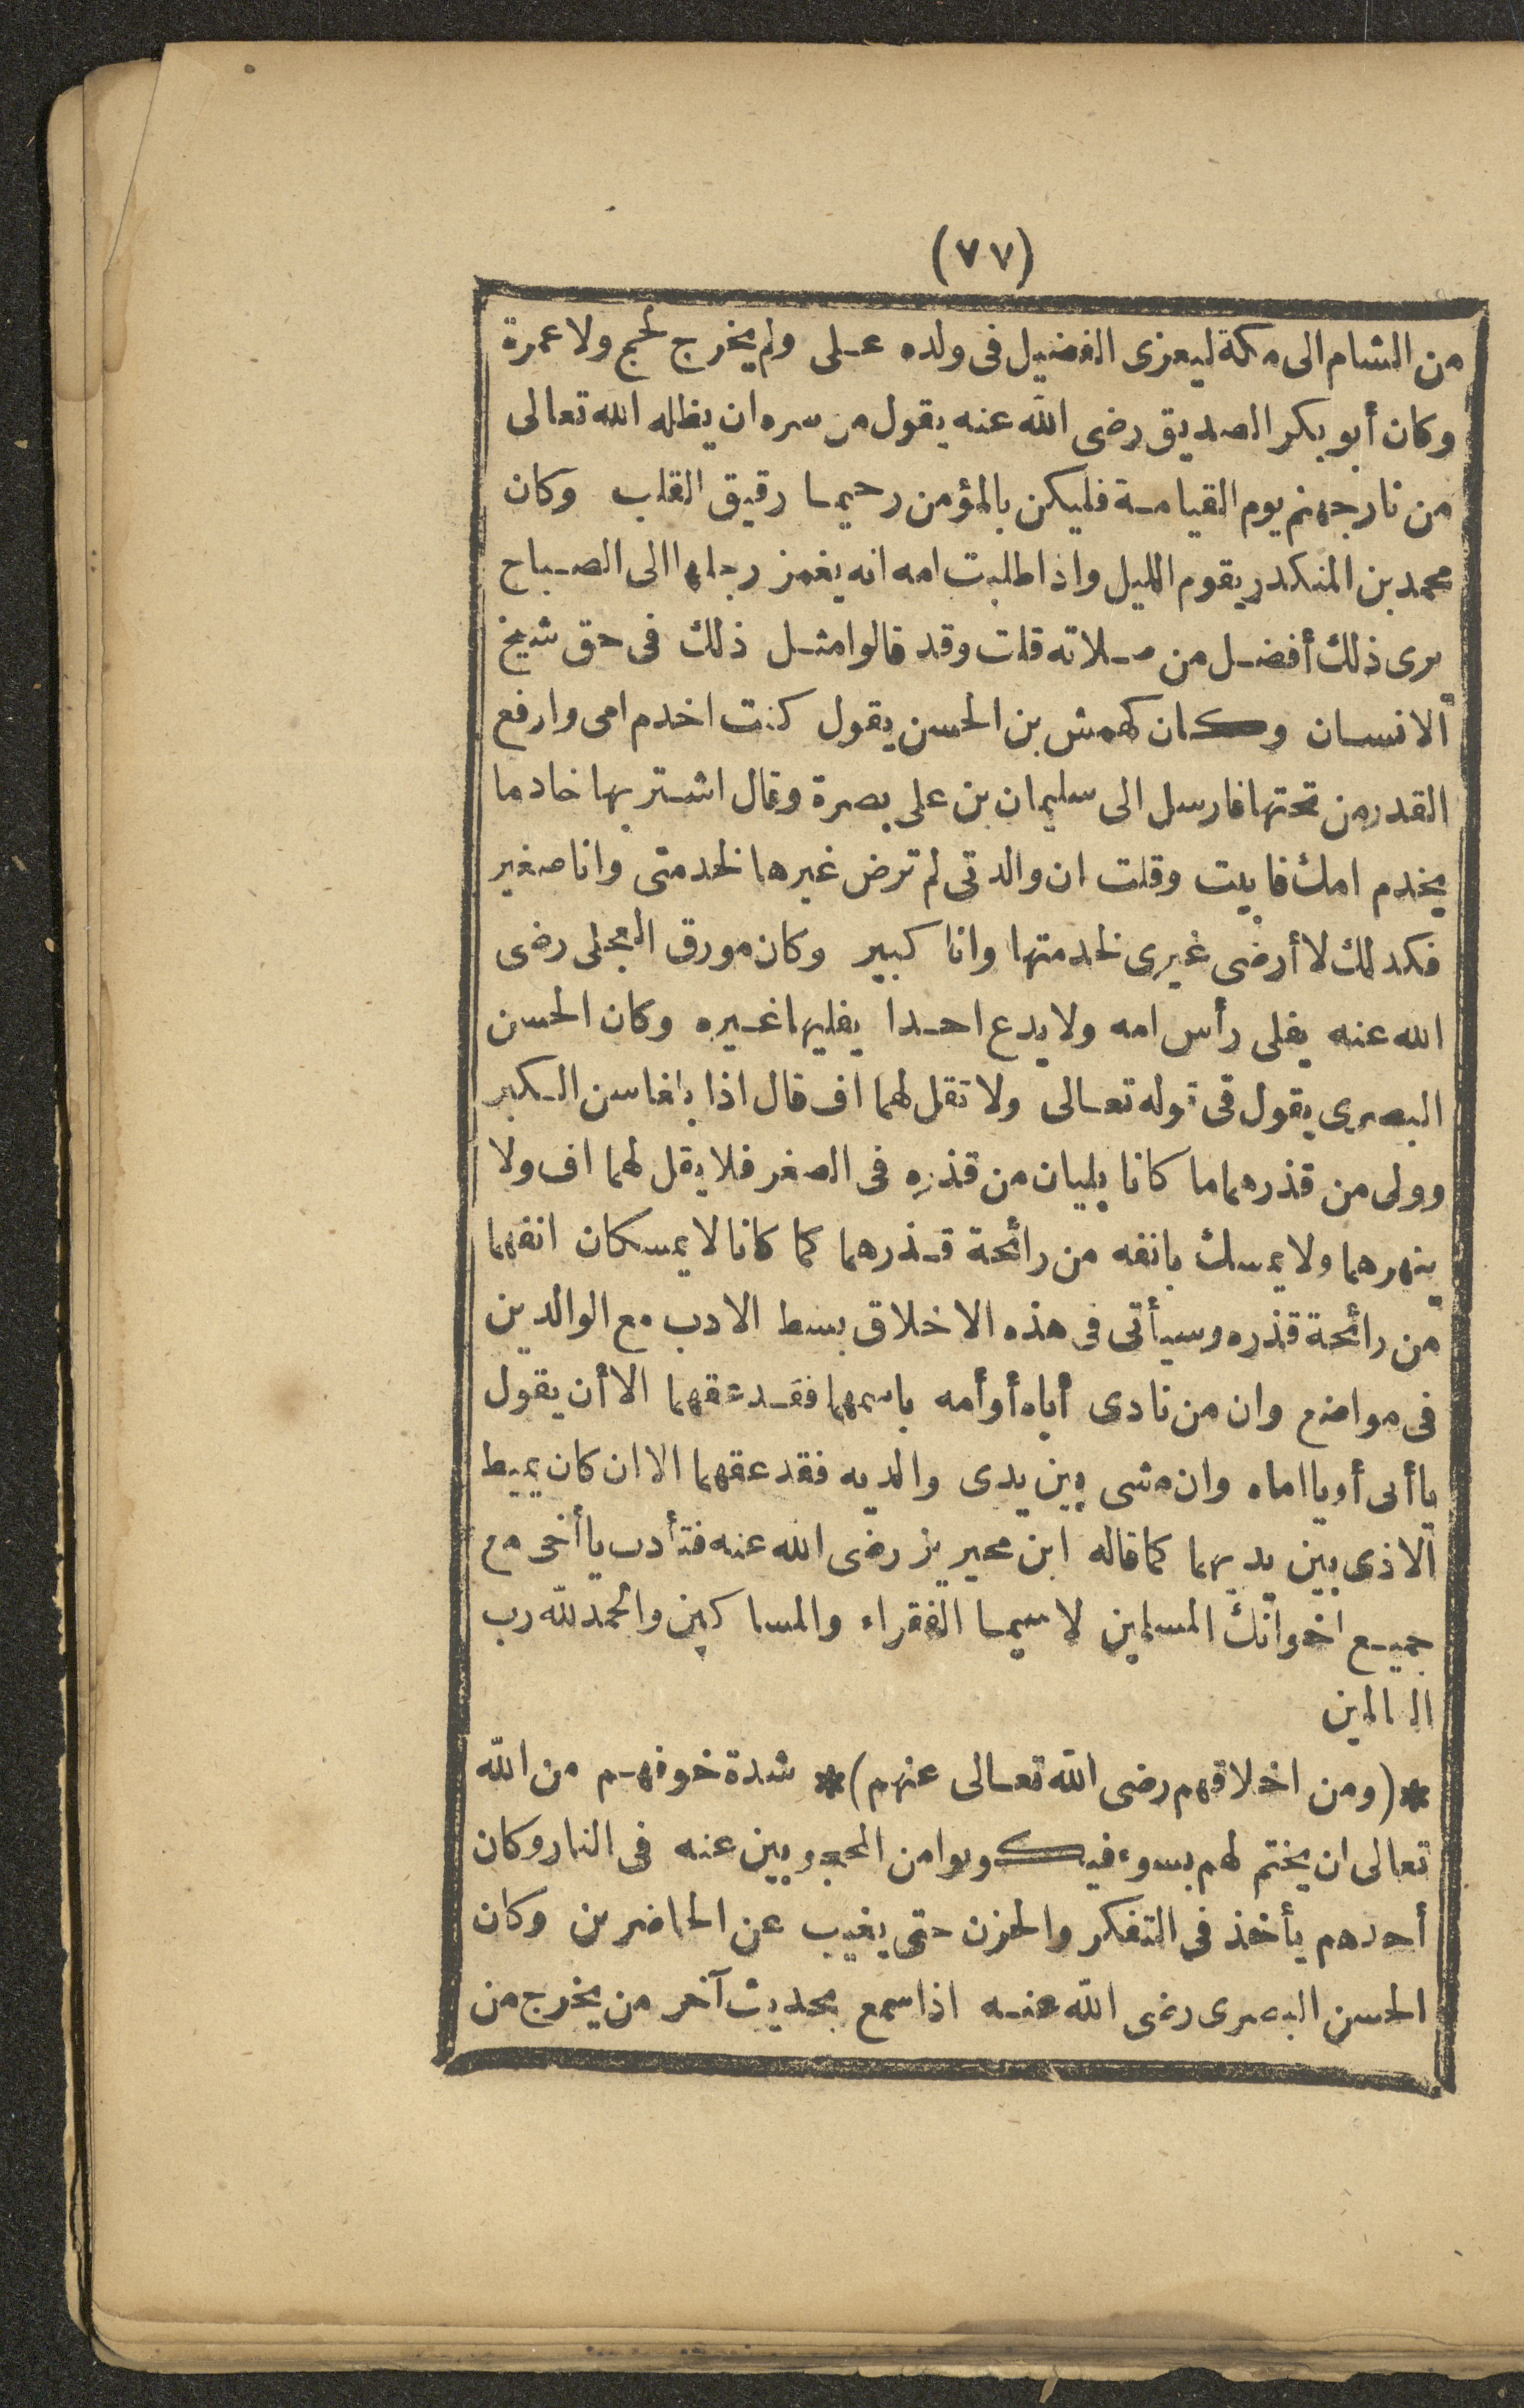 (٧٧)
من الشام الى مكة ليعزى الفضيل فى ولده على ولم يخرج لحج ولا عمرة
وكان أبو بكر الصديق رضى الله عنه يقول من سره ان يظله الله تعالى
من نار جهنم يوم القيامة فليكن بالمؤمن رحيما رقيق القلب وكان
محمد بن المنكدر يقوم الليل واذا طلبت امه انه يغمز رجلها الى الصباح
يرى ذلك أفضل من صلاته قلت وقد قالوا مثل ذلك فى حق شيخ
الانسان وكان كهمش بن الحسن يقول كنت اخدم امى وارفع
القدر من تحتها فارسل الى سليمان بن على بصرة وقال اشتر بها خادما
يخدم امك فابيت وقلت ان والدتى لم ترض غيرها لخدمتى وانا صغير
فكدلك لا أرضى غيرى لخدمتها وانا كبير وكان مورق العجلى رضى
الله عنه يفلى رأس امه ولا يدع احدا يفليها غيره وكان الحسن
البصرى يقول فى قوله تعالى ولا تقل لهما اف قال اذا بلغا سن الكبر
وولى من قذرهما ما كانا يليان من قذره فى الصغر فلا يقل لهما اف ولا
ينهرهما ولا يمسك بانفه من رائحة قذرهما كما كانا لا يمسكان انفهما
من رائحة قذره وسيأتى فى هذه الاخلاق بسط الادب مع الوالدين
فى مواضع وان من نادى أباه أو أمه باسمهما فقد عقهما الا أن يقول
يا أبى أو يا اماه وان مشى بين يدى والديه فقد عقهما الا ان كان يميط
الاذى بين يديهما كما قاله ابن محيريز رضى الله عنه فتأدب يا أخى مع
جميع اخوانك المسلمين لا سيما الفقراء والمساكين والحمد لله رب
العالمين
*(ومن اخلاقهم رضى الله تعالى عنهم)* شدة خوفهم من الله
تعالى ان يختم لهم بسوء فيكونوا من المحجوبين عنه فى النار وكان
أحدهم يأخذ فى التفكر والحزن حتى يغيب عن الحاضرين وكان
الحسن البصرى رضى الله عنه اذا سمع بحديث آخر من يخرج من